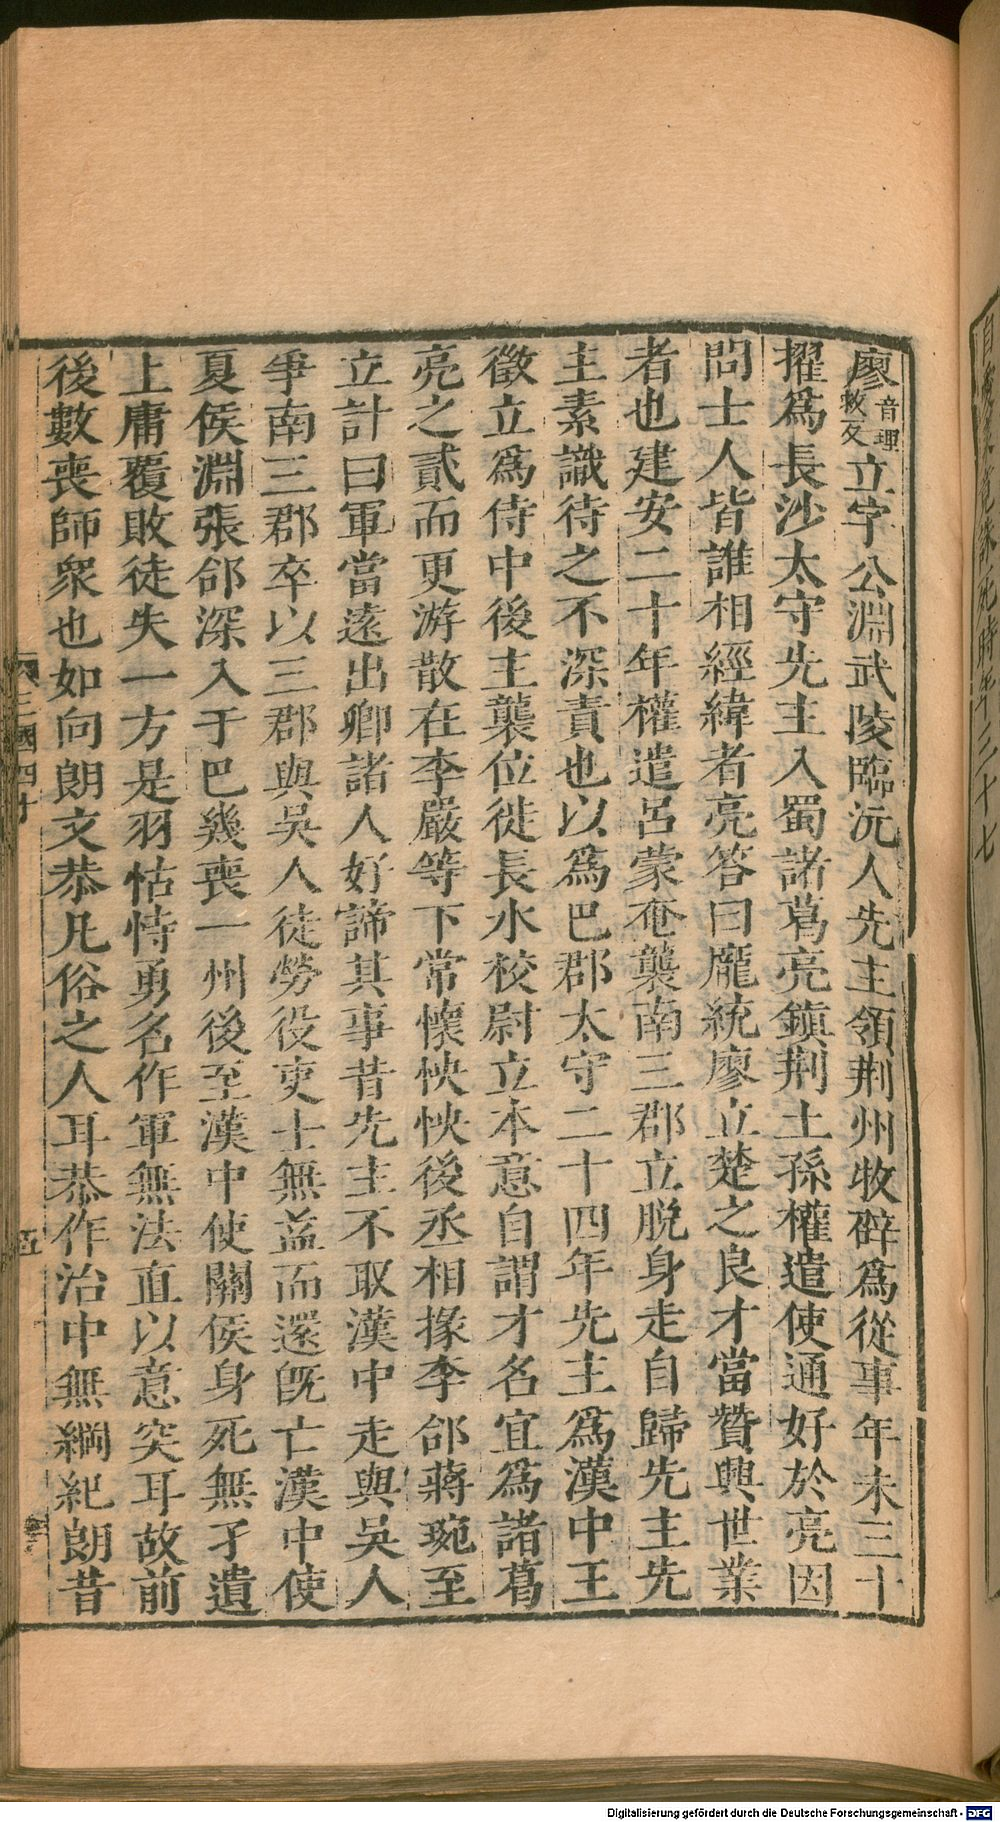 廖音理救反立字公淵武陵臨沅人先主領荆州牧辟爲從事年未三十
擢爲長沙太守先主入蜀諸葛亮鎮荆土孫權遣使通好於亮因
問士人皆誰相經緯者亮答曰龐統廖立楚之良才當贊興世業
者也建安二十年權遣呂蒙奄襲南三郡立脱身走自歸先主先
主素識待之不深責也以爲巴郡太守二十四年先主爲漢中王
徵立爲侍中後主襲位徙長水校尉立本意自謂才名宜爲諸葛
亮之貳而更游散在李嚴等下常懷怏怏後丞相掾李郃蔣琬至
立計曰軍當遠出卿諸人好諦其事昔先主不取漢中走與吳人
爭南三郡卒以三郡與吳人徒勞役吏士無益而還旣亡漢中使
夏侯淵張郃深入于巴幾喪一州後至漢中使關侯身死無孑遺
上庸覆敗徒失一方是羽怙恃勇名作軍無法直以意突耳故前
後數喪師衆也如向朗文恭凡俗之人耳恭作治中無綱紀朗昔
三國四十
五
時年三十七
Digitalisierung gefördert durch die Deutsche Forschungsgemeinschaft - DFG